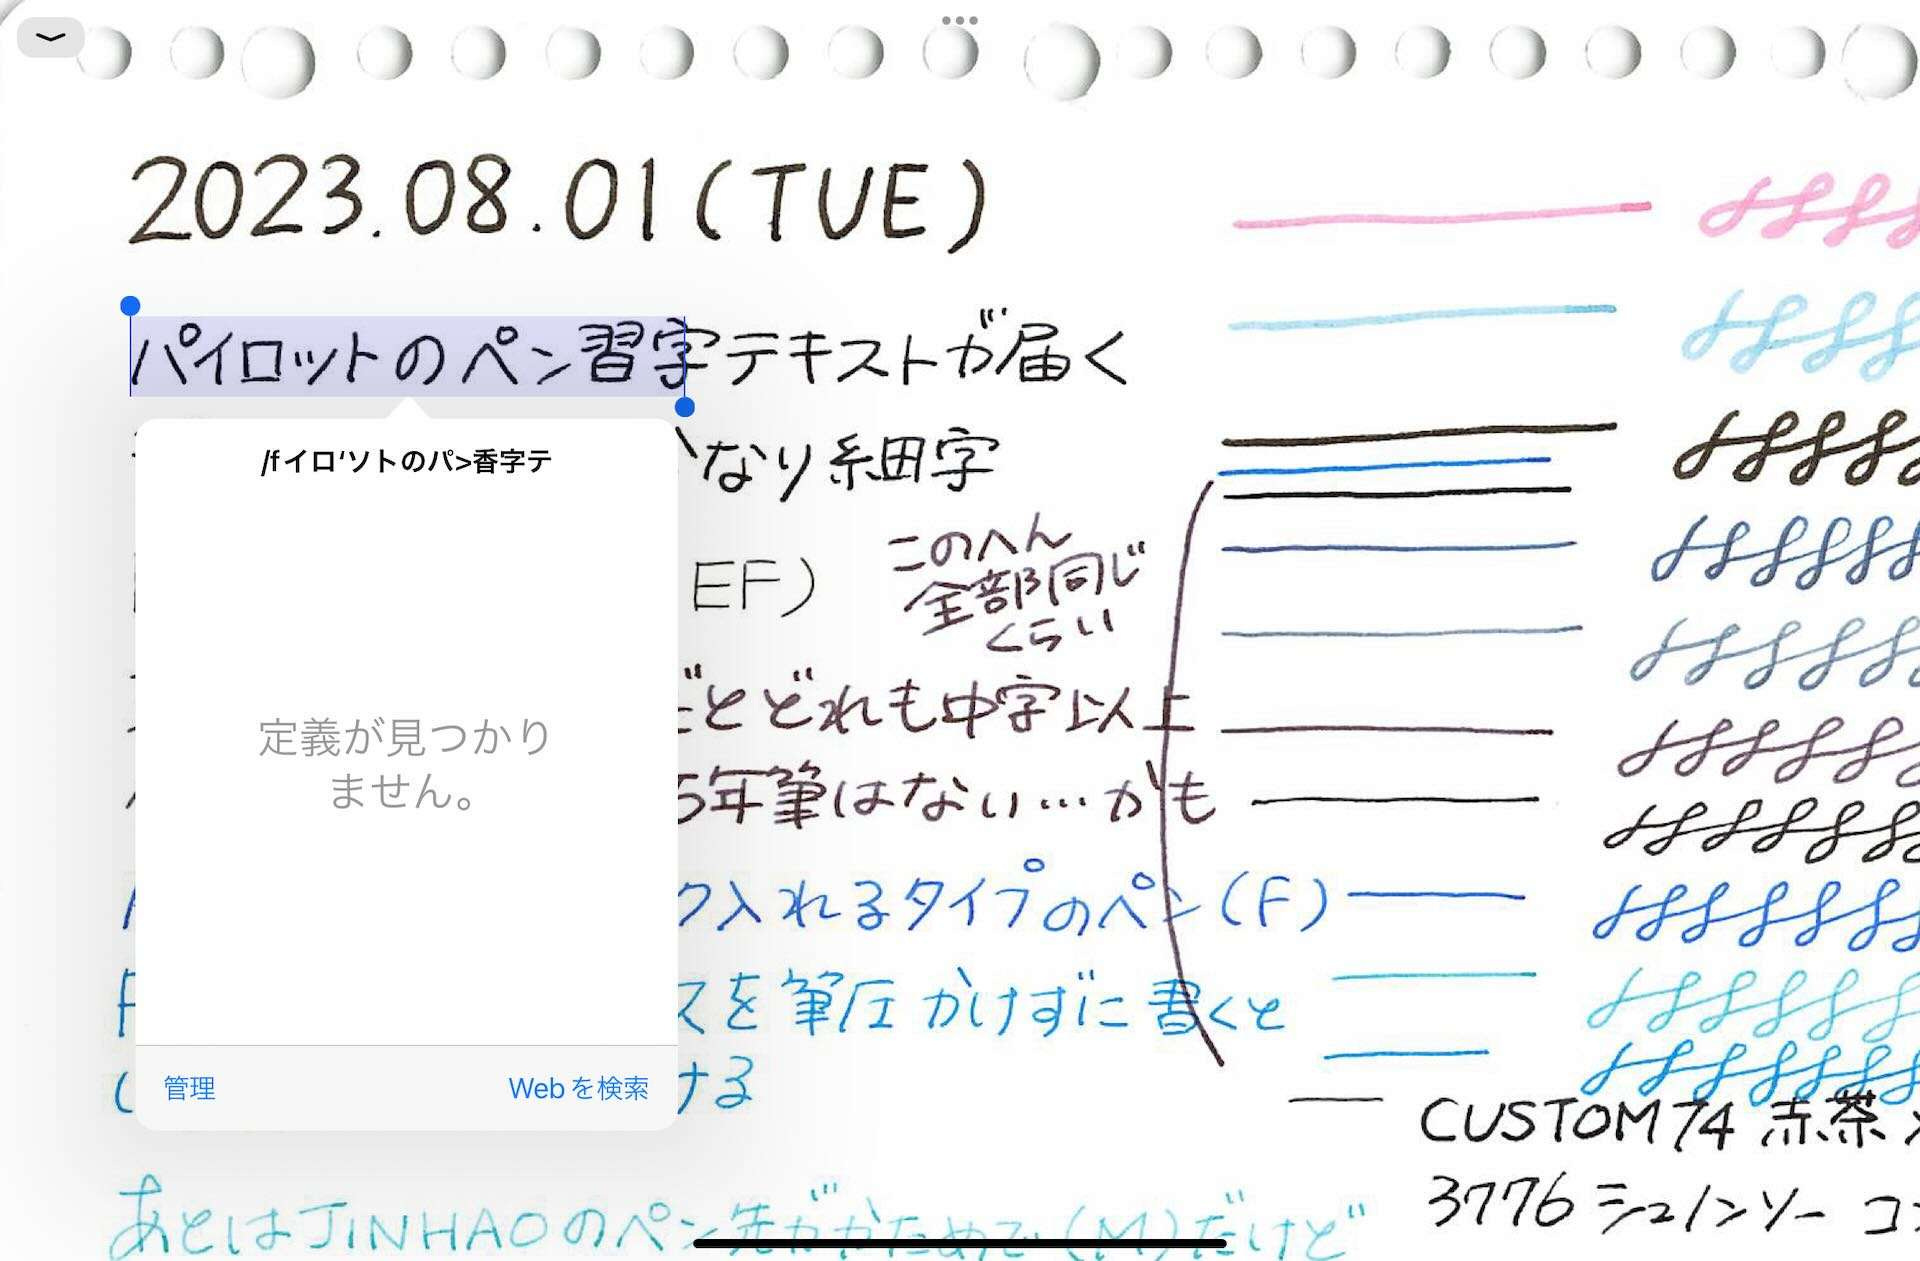 2023.08.01(TUE)
パイロットのペン習字テキストが届く
/fイロ‘ソトのパ>香字テ
なり細字
このへん
全部同じ
くらい
EF)
どれも中字以上
年筆はない…かも
定義が見つかり
ません。
入れるタイプのペン(F)
スを筆圧かけずに書くと
ける
管理
Webを検索
CUSTOM74 赤茶
3776 シュノンソー コ
あとはJINHAOのペン先がかためで(M)だけど